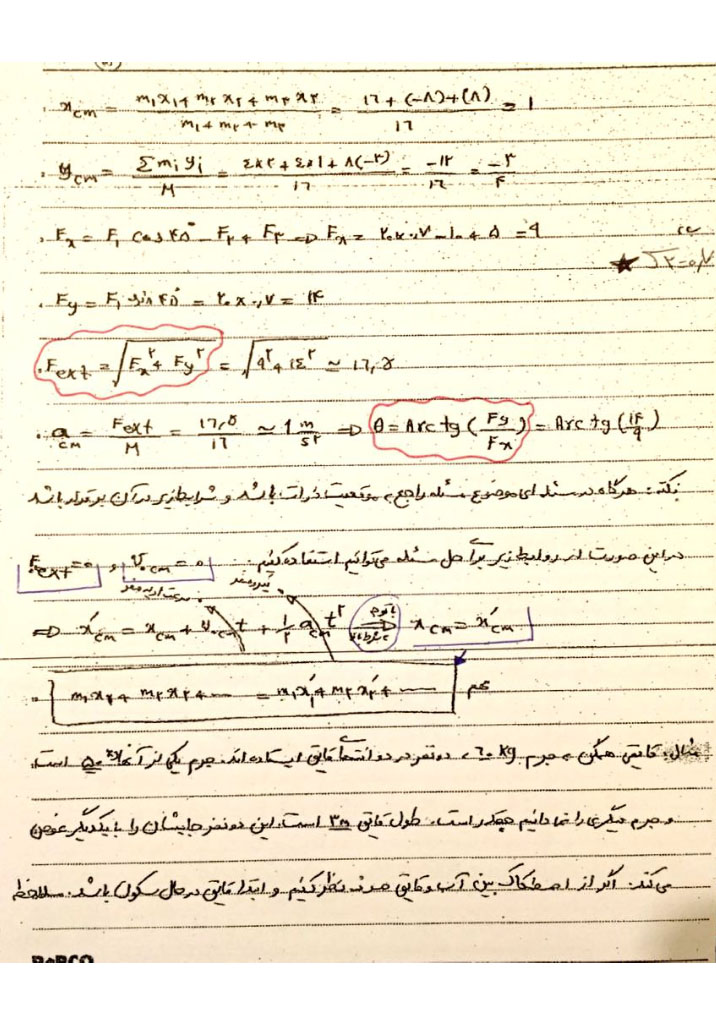 x_cm = (m₁x₁ + m₂x₂ + m₃x₃) / (m₁ + m₂ + m₃) = (۱۶ + (-۸) + (۸)) / ۱۶ = ۱
y_cm = Σmᵢyᵢ / M = (۴×۲ + ۴×۱ + ۸(-۳)) / ۱۶ = -۱۲/۱۶ = -۳/۴
F_x = F₁ cos ۴۵° - F₂ + F₃ ⇒ F_x = ۲۰×۰٫۷ - ۱۰ + ۵ = ۹
★ √۲ = ۰٫۷
F_y = F₁ sin ۴۵° = ۲۰×۰٫۷ = ۱۴
F_ext = √(F_x² + F_y²) = √(۹² + ۱۴²) ≃ ۱۶٫۵
a_cm = F_ext / M = ۱۶٫۵ / ۱۶ ≃ ۱ m/s² ⇒ θ = Arctg(F_y / F_x) = Arctg(۱۴/۹)
نکته: هرگاه در مسئله ای موضوع مسئله راجع به موقعیت ذرات باشد و شرایط زیر در آن برقرار باشد
در این صورت از روابط زیر برای حل مسئله می‌توانیم استفاده کنیم. F_ext = ۰ , v_۰cm = ۰
⇒ x'_cm = x_cm + v_۰cm t + ½ a_cm t² ⇒ x_cm = x'_cm
m₁x₁ + m₂x₂ + ⋯ = m₁x'₁ + m₂x'₂ + ⋯ مهم
مثال: قایقی همگن به جرم ۶۰ kg، دو نفر در دو انتهای قایق ایستاده‌اند. جرم یکی از آنها ۵۰ kg است.
و جرم دیگری را نمی دانیم چقدر است. طول قایق ۳m است. این دو نفر جایشان را با یکدیگر عوض
می کنند. اگر از اصطکاک بین آب و قایق صرف نظر کنیم و ابتدا قایق در حال سکون باشد.
PAPCO